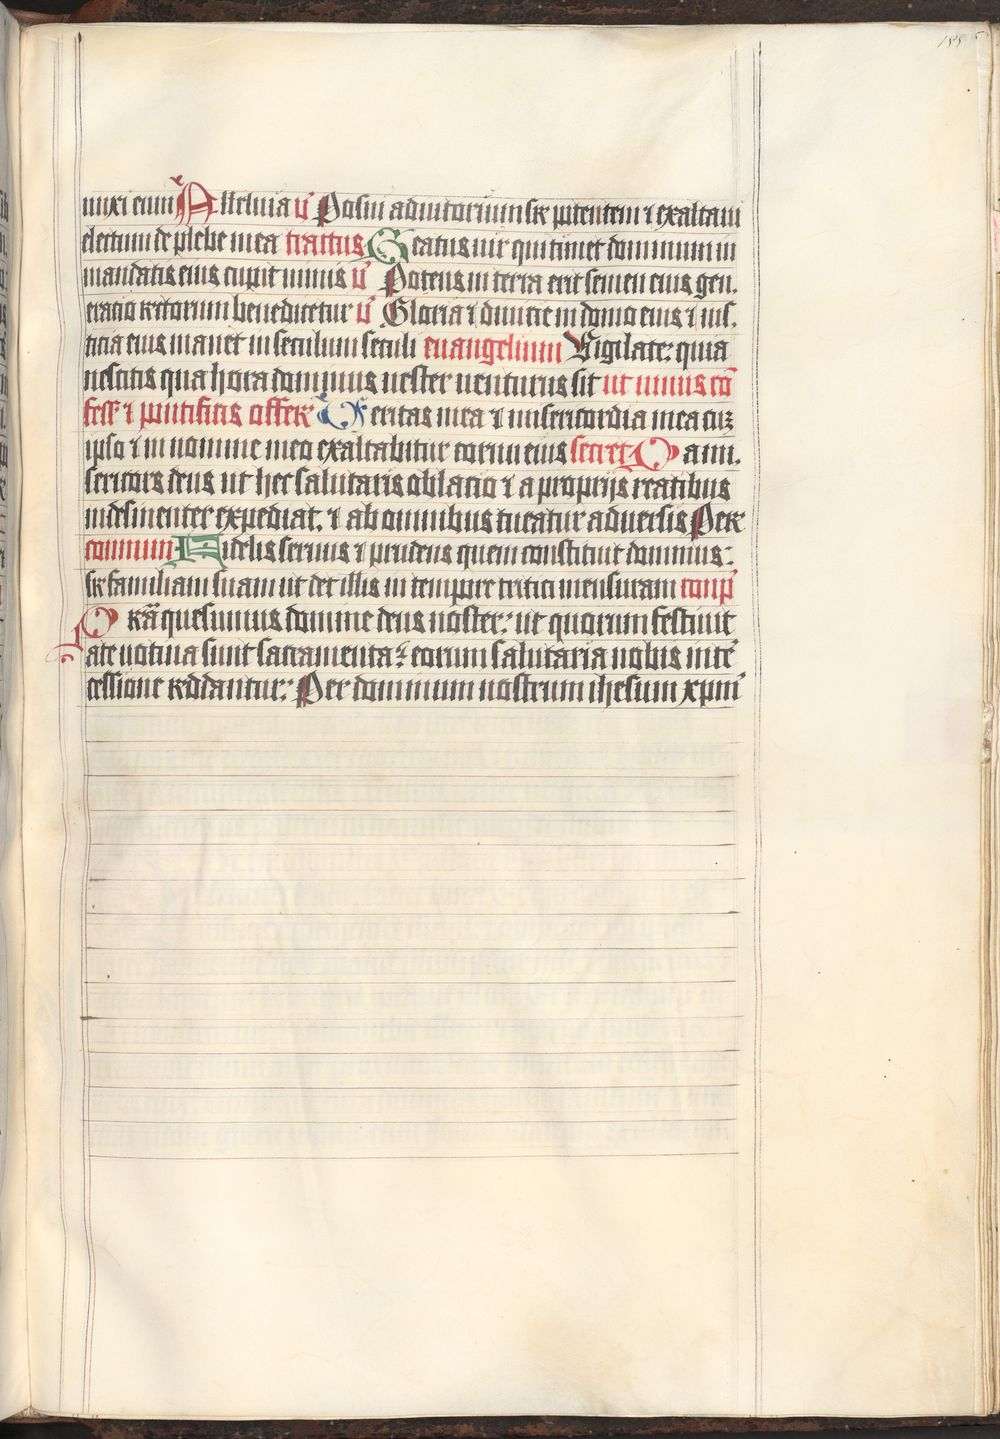 155
unxi eum Alleluia v̄ Posui adiutorium sr̄ potentem ⁊ exaltaui
electum de plebe mea tractus Beatus uir qui timet dominum in
mandatis eius cupit nimis v̄ Potens in terra erit semen eius gen.
eratio rectorum benedicetur v̄ Gloria ⁊ diuicie in domo eius ⁊ ius.
ticia eius manet in seculum seculi euangelium Vigilate: quia
nescitis qua hora dominus uester uenturus sit ut unius cō
fess̄ ⁊ pontificis offer̄ Veritas mea ⁊ misericordia mea cuz
ipso ⁊ in nomine meo exaltabitur cornu eius secret̄ Da mi.
sericors deus ut hec salutaris oblacio ⁊ a proprijs reatibus
indesinenter expediat. ⁊ ab omnibus tueatur aduersis Per
commun̄ Fidelis seruus ⁊ prudens quem constituit dominus:
sr̄ familiam suam ut det illis in tempore tritici mensuram comp̄
Orā quesumus domine deus noster: ut quorum festiuit
ate uotiua sunt sacramenta: eorum salutaria nobis inte᷒
cessione reddantur: Per dominum nostrum ihesum xpm̄